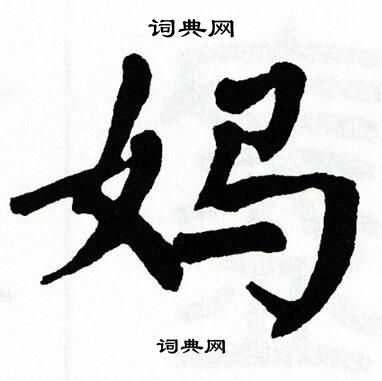 词典网
妈
词典网